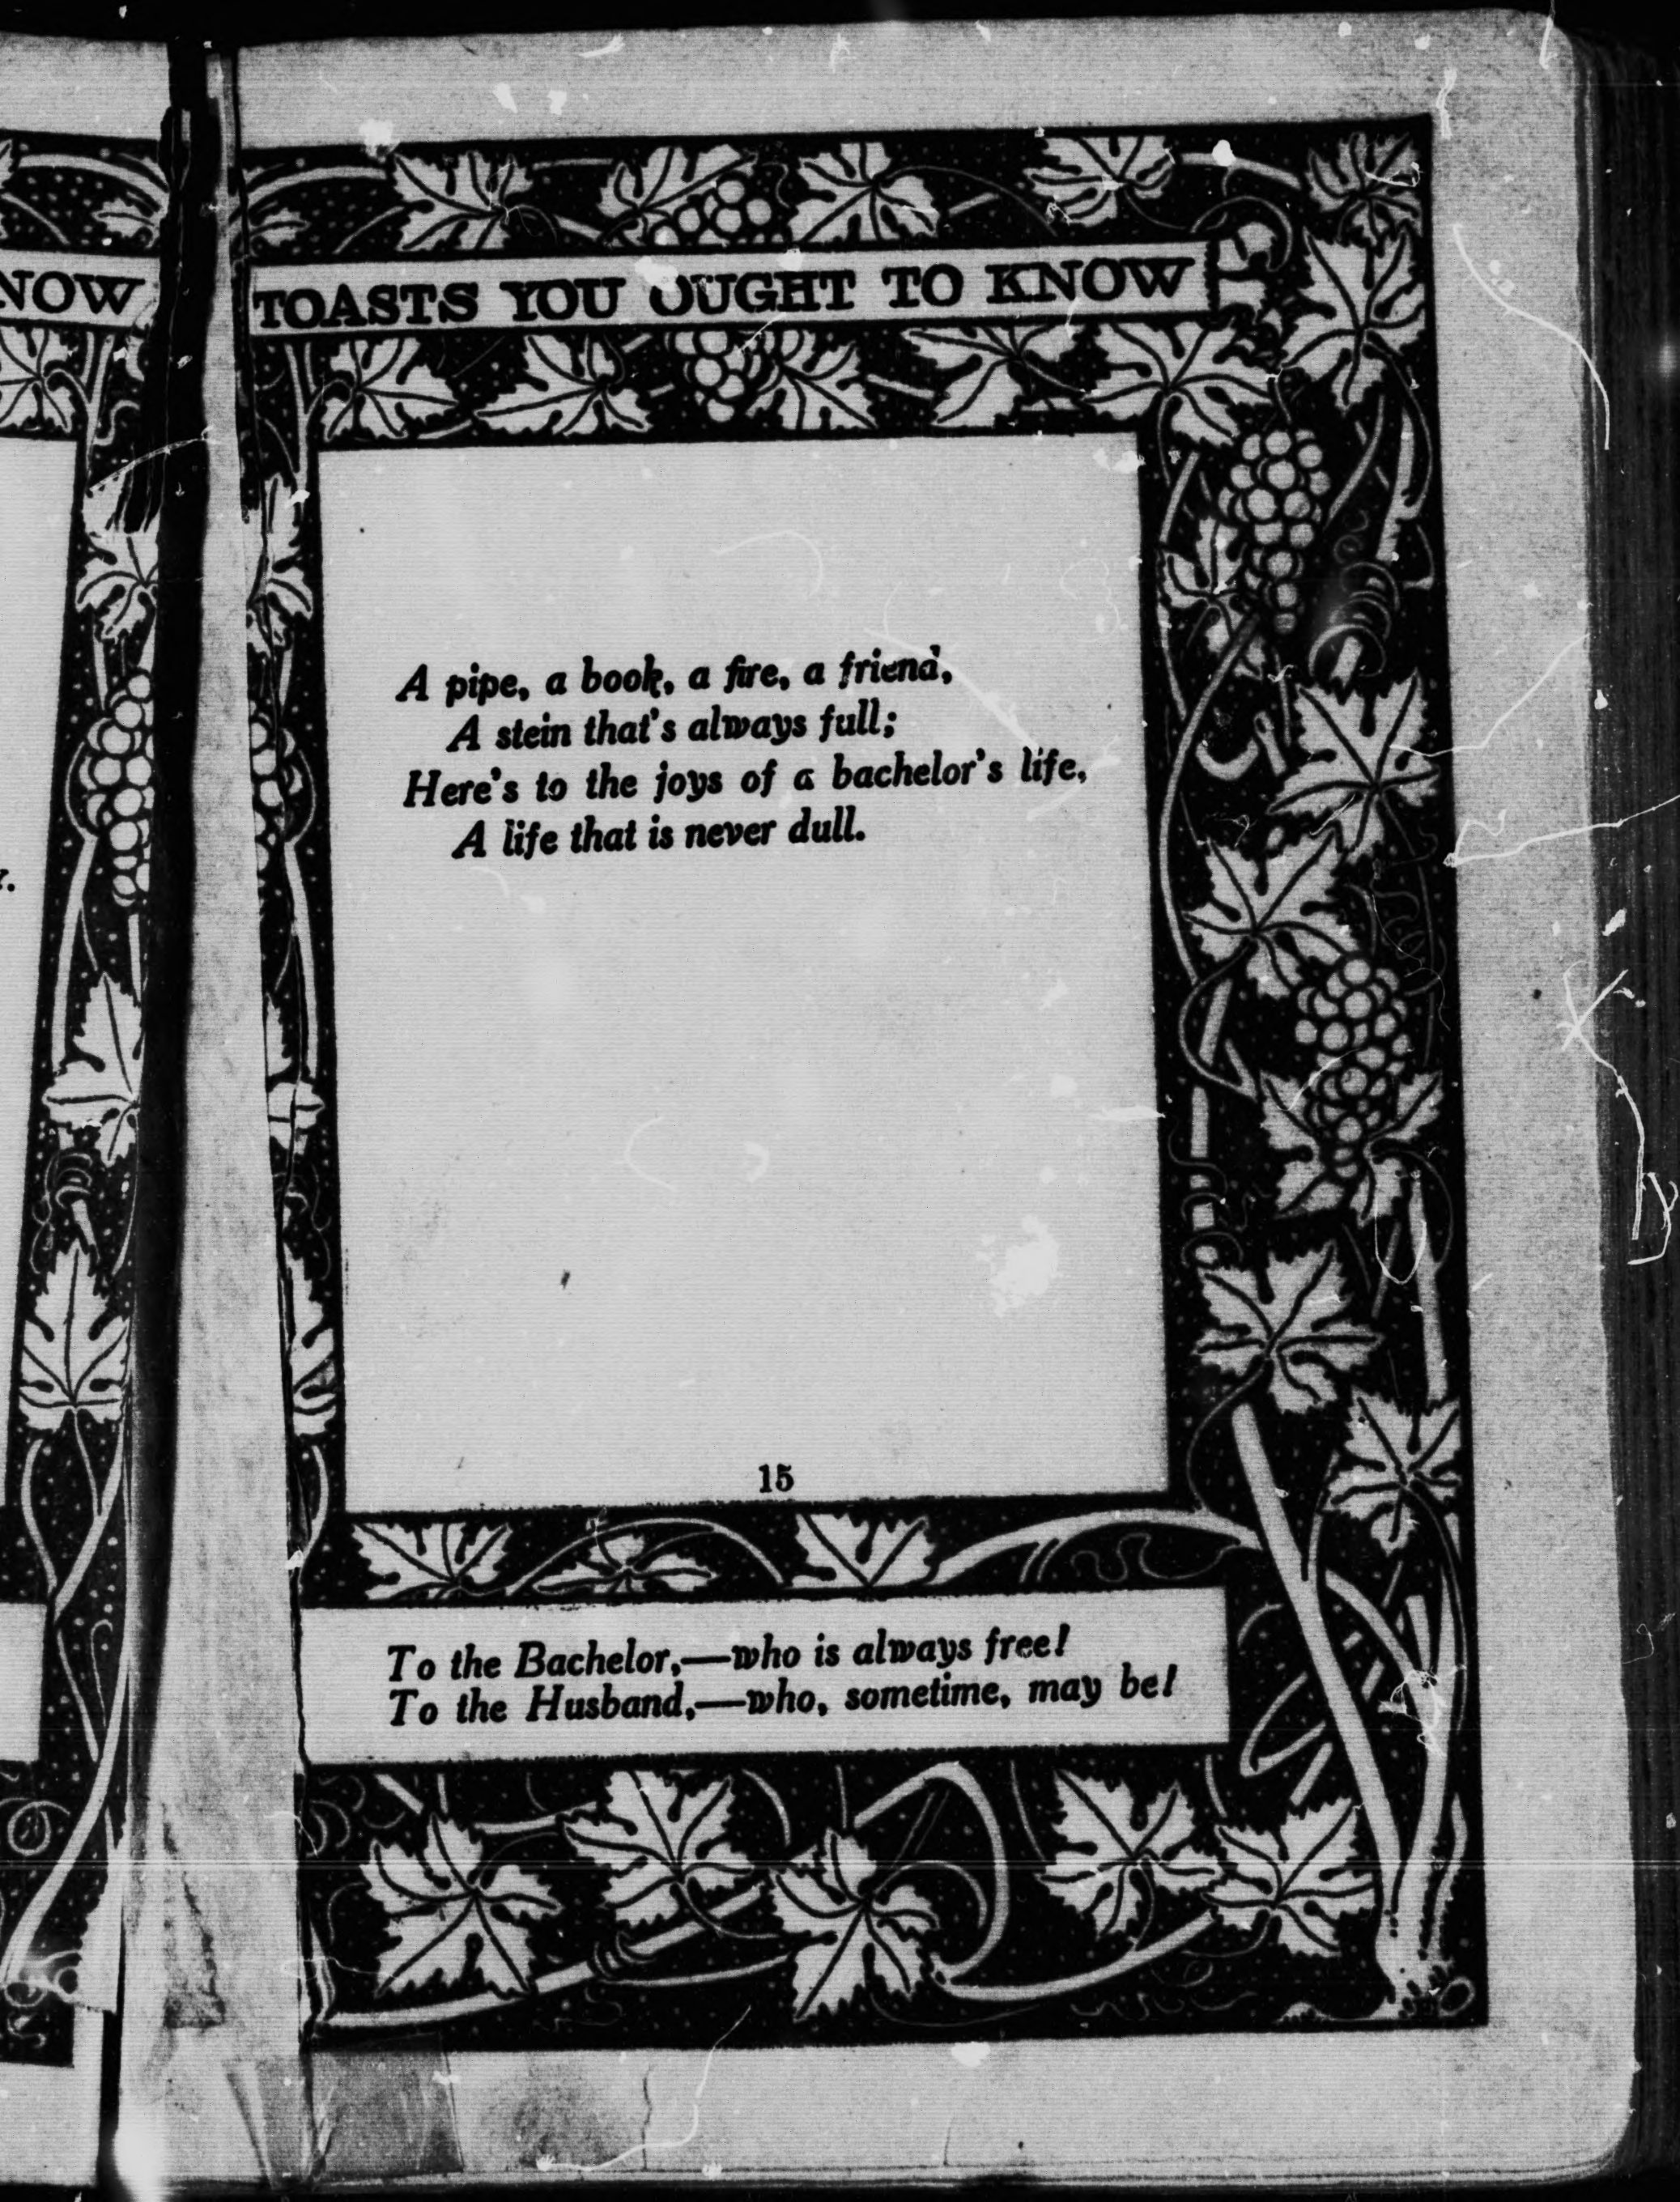 NOW
TOASTS YOU OUGHT TO KNOW
A pipe, a book, a fire, a friend,
A stein that's always full;
Here's to the joys of a bachelor's life,
A life that is never dull.
15
To the Bachelor,—who is always free!
To the Husband,—who, sometime, may be!